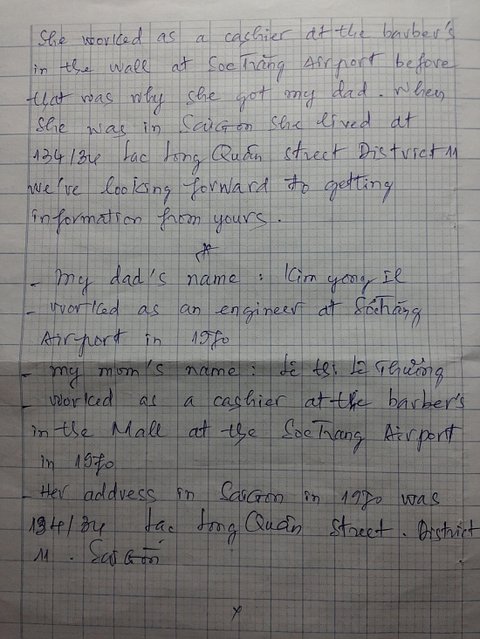 She worked as a cashier at the barber's
in the wall at SocTrăng Airport before
that was why she got my dad. When
she was in SaiGon she lived at
134/34 Lac Long Quân street District 11
we're looking forward to getting
information from yours.
- My dad's name : Kim yong Il
- worked as an engineer at SócTrăng
Airport in 1970
- my mom's name : Lê thị Lệ Thường
- worked as a cashier at the barber's
in the Mall at the SocTrang Airport
in 1970
- Her address in SaiGon in 1970 was
134/34 Lac Long Quân Street. District
11. SaiGon